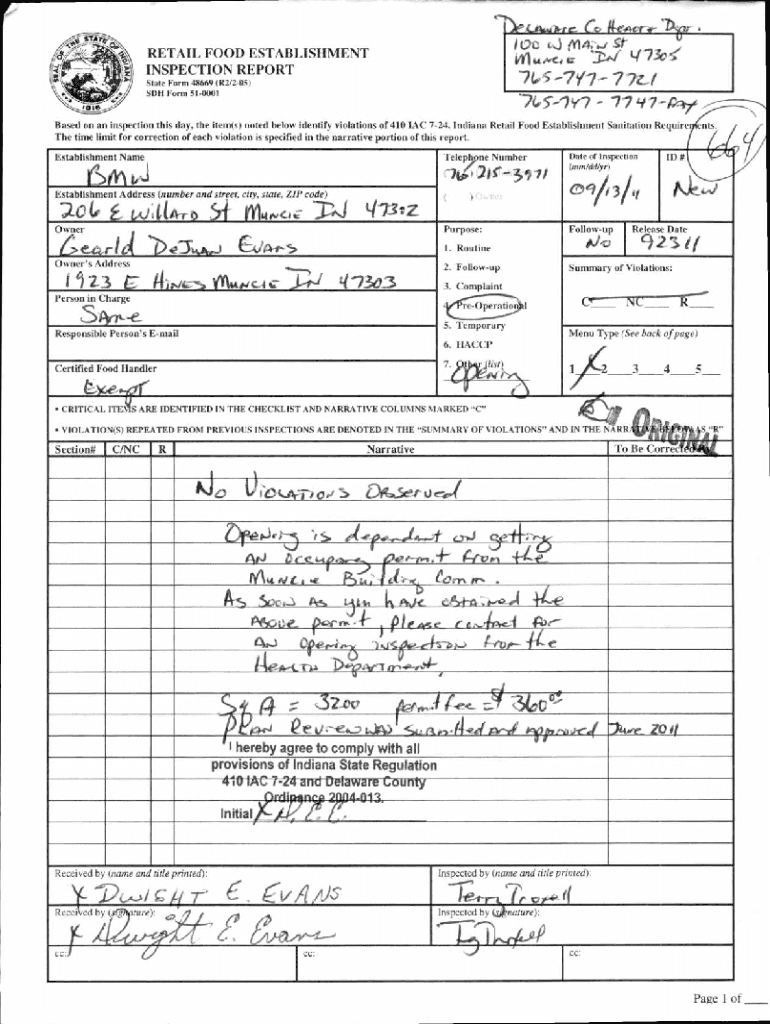 DELAWARE Co HEALTH Dept.
100 W MAIN St
MUNCIE IN 47305
765-747-7721
765-747-7747-FAX
SEAL OF THE STATE OF INDIANA
1816
RETAIL FOOD ESTABLISHMENT
INSPECTION REPORT
State Form 48669 (R2/2-05)
SDH Form 51-0001
Based on an inspection this day, the item(s) noted below identify violations of 410 IAC 7-24, Indiana Retail Food Establishment Sanitation Requirements.
The time limit for correction of each violation is specified in the narrative portion of this report.
664
Establishment Name
BMW
Telephone Number
(765) 215-3971
( ) Owner
Date of Inspection
(mm/dd/yr)
09/13/11
ID #
New
Establishment Address (number and street, city, state, ZIP code)
206 E Willard St MUNCIE IN 47302
Owner
Gearld DeJuan Evans
Purpose:
Follow-up
No
Release Date
92311
Owner's Address
1923 E HINES MUNCIE IN 47303
1. Routine
2. Follow-up
3. Complaint
4. Pre-Operational
5. Temporary
6. HACCP
7. Other (list)
Opening
Summary of Violations:
C NC R
Person in Charge
Same
Responsible Person's E-mail
Menu Type (See back of page)
1 X 2 3 4 5
Certified Food Handler
Exempt
• CRITICAL ITEMS ARE IDENTIFIED IN THE CHECKLIST AND NARRATIVE COLUMNS MARKED "C"
• VIOLATION(S) REPEATED FROM PREVIOUS INSPECTIONS ARE DENOTED IN THE "SUMMARY OF VIOLATIONS" AND IN THE NARRATIVE BELOW AS "R"
ORIGINAL
Section# C/NC R Narrative To Be Corrected By
No Violations Observed
Opening is dependant on getting
AN occupancy permit from the
Muncie Building Comm.
As soon as you have obtained the
Above permit, please contact for
AN opening inspection from the
Health Department,
Sq A = 3200 permit fee = $360.00
PLAN Review was submitted and approved June 2011
I hereby agree to comply with all
provisions of Indiana State Regulation
410 IAC 7-24 and Delaware County
Ordinance 2004-013.
Initial
Received by (name and title printed):
X DWIGHT E. EVANS
Inspected by (name and title printed):
Terry Troxell
Received by (signature):
X Dwight E. Evans
Inspected by (signature):
Terry Troxell
cc: cc: cc:
Page 1 of